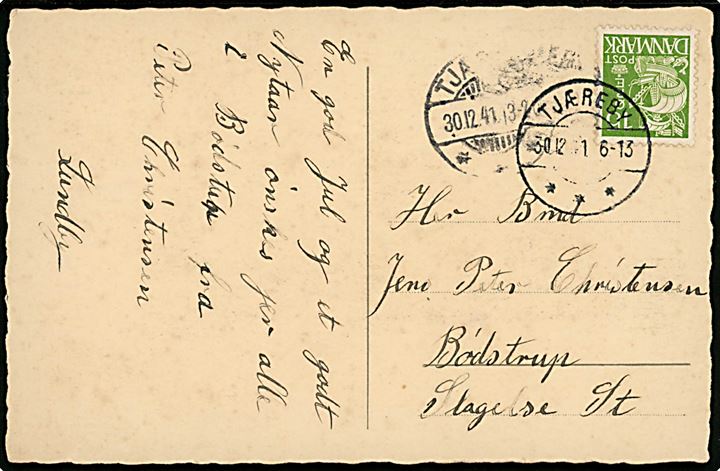 En god Jul og et godt
Nytaar ønskes for alle
i Bødstrup fra
Peter Christensen
Lundby
DANMARK
POST
TJÆREBY
30.12.41.13-2
TJÆREBY
30.12.41 6-13
Her Bmd
Jens Peter Christensen
Bødstrup
Slagelse St